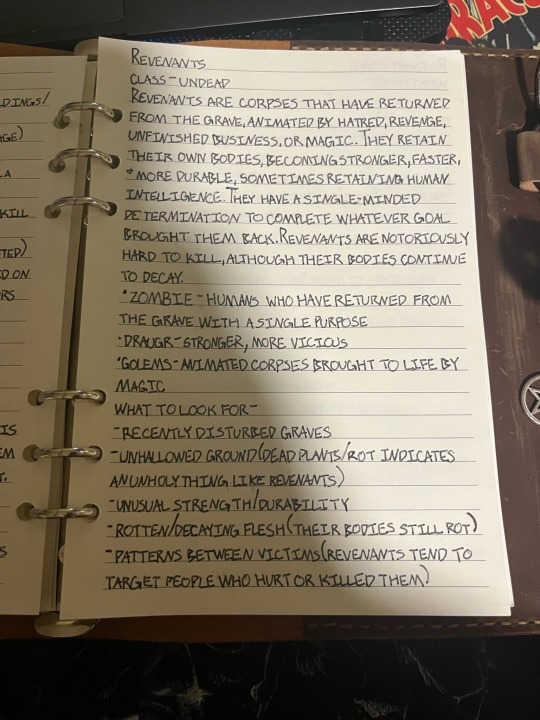 REVENANTS
CLASS-UNDEAD
REVENANTS ARE CORPSES THAT HAVE RETURNED
FROM THE GRAVE, ANIMATED BY HATRED, REVENGE,
UNFINISHED BUSINESS, OR MAGIC. THEY RETAIN
THEIR OWN BODIES, BECOMING STRONGER, FASTER,
+ MORE DURABLE, SOMETIMES RETAINING HUMAN
INTELLIGENCE. THEY HAVE A SINGLE-MINDED
DETERMINATION TO COMPLETE WHATEVER GOAL
BROUGHT THEM BACK. REVENANTS ARE NOTORIOUSLY
HARD TO KILL, ALTHOUGH THEIR BODIES CONTINUE
TO DECAY.
•ZOMBIE-HUMANS WHO HAVE RETURNED FROM
THE GRAVE WITH A SINGLE PURPOSE
•DRAUGR-STRONGER, MORE VICIOUS
•GOLEMS-ANIMATED CORPSES BROUGHT TO LIFE BY
MAGIC
WHAT TO LOOK FOR-
-RECENTLY DISTURBED GRAVES
-UNHALLOWED GROUND(DEAD PLANTS/ROT INDICATES
AN UNHOLY THING LIKE REVENANTS)
-UNUSUAL STRENGTH/DURABILITY
-ROTTEN/DECAYING FLESH(THEIR BODIES STILL ROT)
-PATTERNS BETWEEN VICTIMS(REVENANTS TEND TO
TARGET PEOPLE WHO HURT OR KILLED THEM)